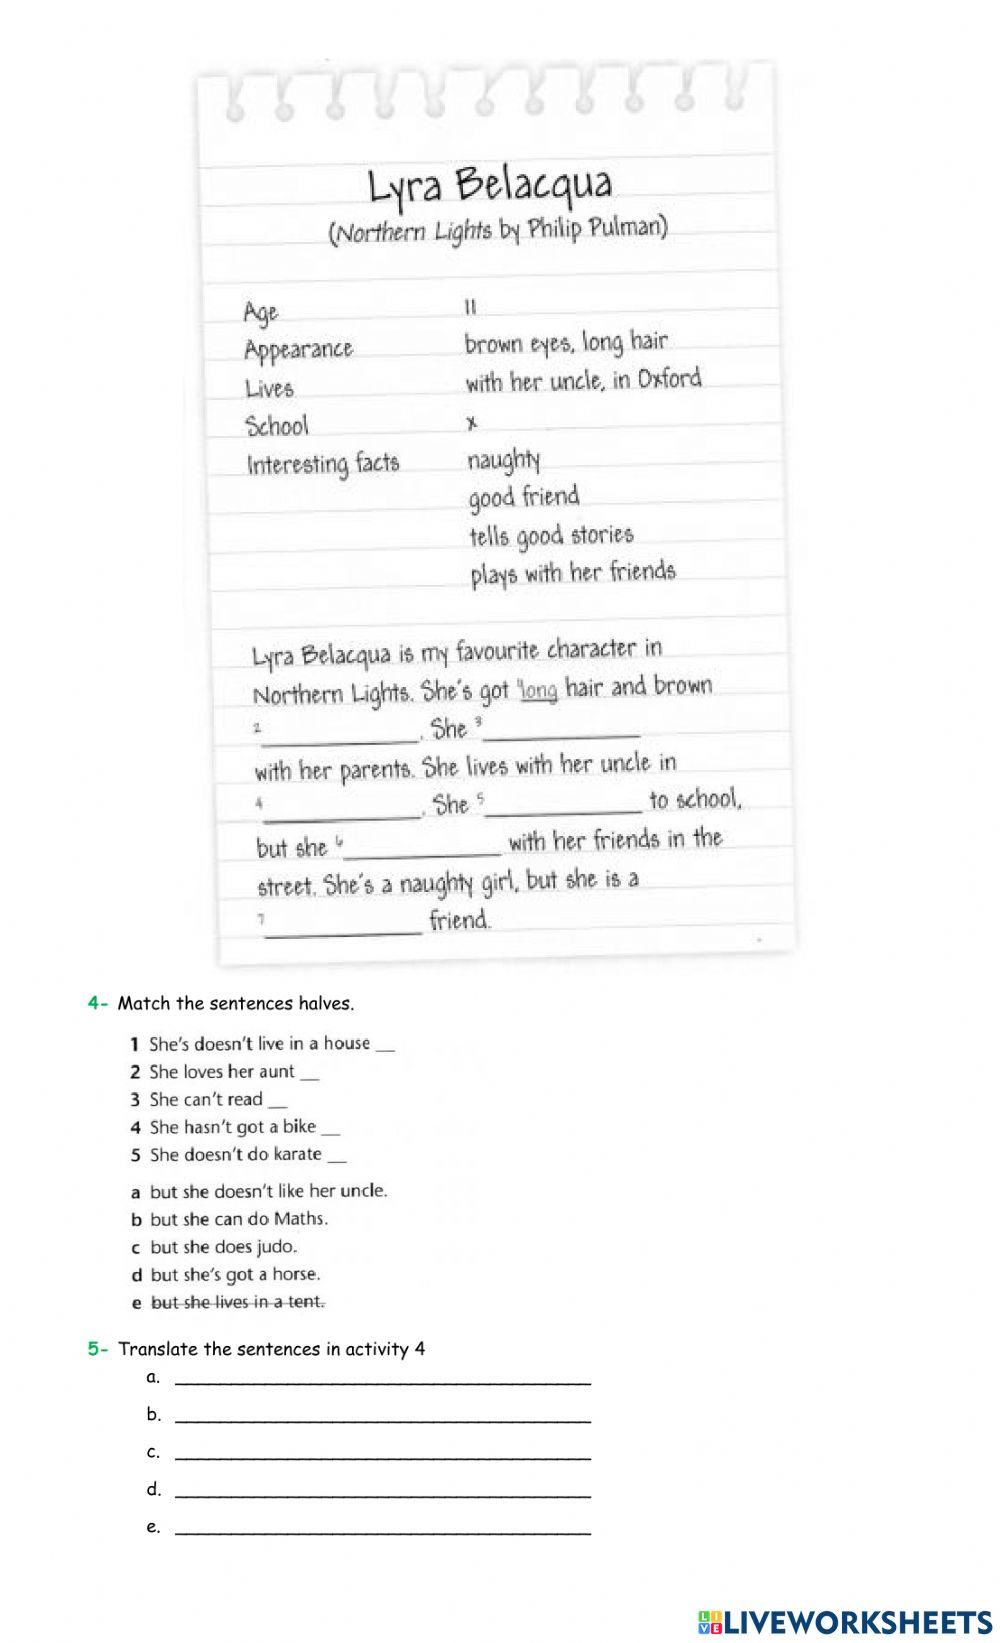 Lyra Belacqua
(Northern Lights by Philip Pulman)
Age 11
Appearance brown eyes, long hair
Lives with her uncle, in Oxford
School x
Interesting facts naughty
good friend
tells good stories
plays with her friends
Lyra Belacqua is my favourite character in
Northern Lights. She's got 1long hair and brown
2____________. She 3____________
with her parents. She lives with her uncle in
4____________. She 5____________ to school,
but she 6____________ with her friends in the
street. She's a naughty girl, but she is a
7____________ friend.
4- Match the sentences halves.
1 She's doesn't live in a house __
2 She loves her aunt __
3 She can't read __
4 She hasn't got a bike __
5 She doesn't do karate __
a but she doesn't like her uncle.
b but she can do Maths.
c but she does judo.
d but she's got a horse.
e but she lives in a tent.
5- Translate the sentences in activity 4
a. ____________
b. ____________
c. ____________
d. ____________
e. ____________
LIVE LIVEWORKSHEETS